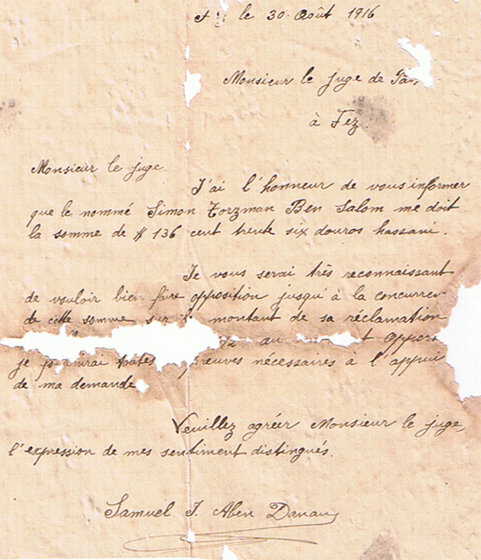 le 30 Août 1916
Monsieur le Juge de
à Fez
Monsieur le Juge
J'ai l'honneur de vous informer
que le nommé Simon Torzman Ben Salom me doit
la somme de $ 136 cent trente six douros hassani.
Je vous serai très reconnaissant
de vouloir bien faire opposition jusqu'à la concurren
de cette somme sur montant de sa réclamation
au
je fournirai toutes preuves nécessaires à l'appui
de ma demande
Veuillez agréer Monsieur le Juge,
l'expression de mes sentiment distingués.
Samuel J. Aben Danan